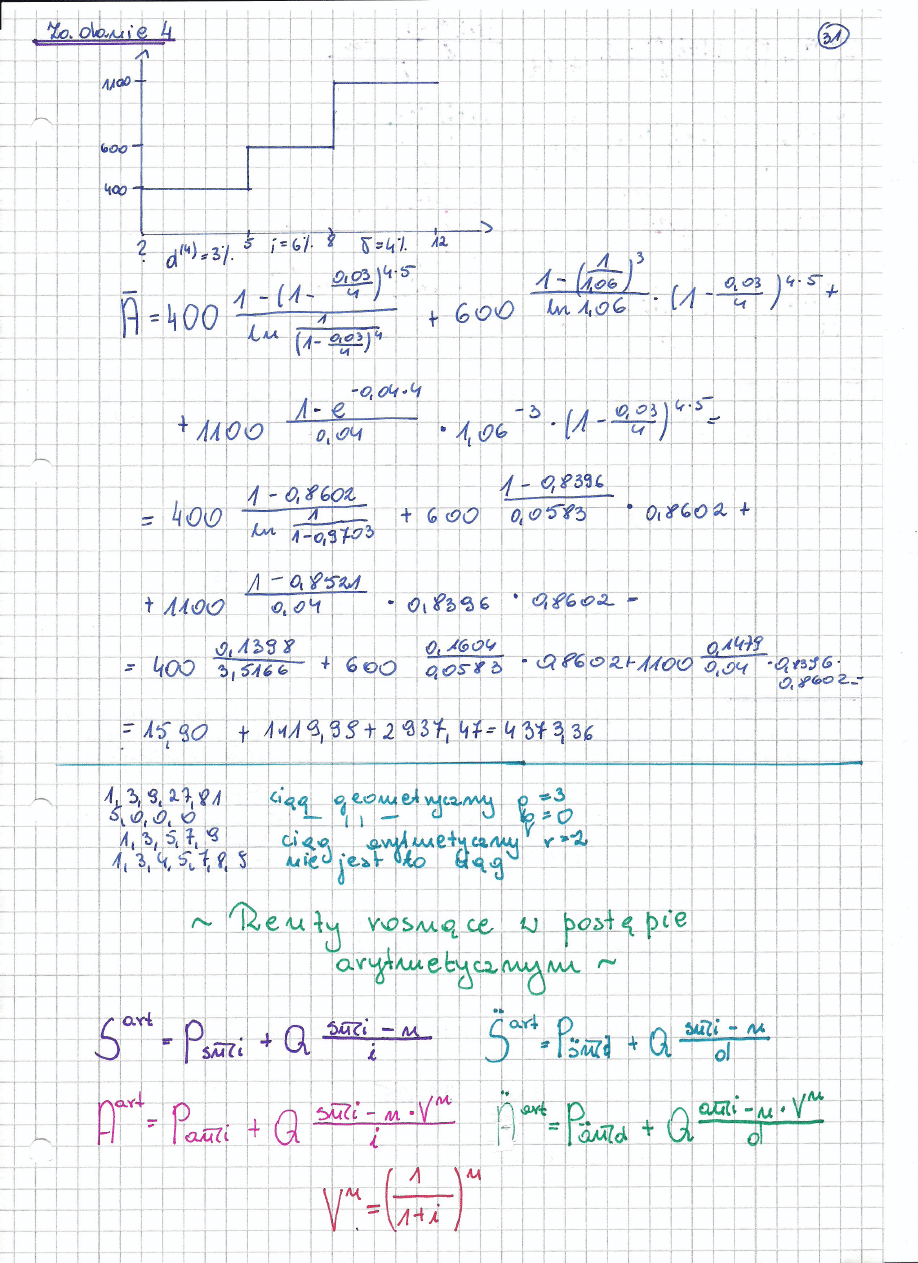 Zadanie 4
31
1100
600
400
? d^(4)=3% 5 i=6% 8 δ=4% 12
Ā = 400 \frac{1-(1-\frac{0,03}{4})^{4·5}}{ln \frac{1}{(1-\frac{0,03}{4})^4}} + 600 \frac{1-(\frac{1}{1,06})^3}{ln 1,06} · (1-\frac{0,03}{4})^{4·5} +
+ 1100 \frac{1-e^{-0,04·4}}{0,04} · 1,06^{-3} · (1-\frac{0,03}{4})^{4·5} =
= 400 \frac{1-0,8602}{ln \frac{1}{1-0,9703}} + 600 \frac{1-0,8396}{0,0583} · 0,8602 +
+ 1100 \frac{1-0,8521}{0,04} · 0,8396 · 0,8602 =
= 400 \frac{0,1398}{3,5166} + 600 \frac{0,1604}{0,0583} · 0,8602 + 1100 \frac{0,1479}{0,04} · 0,8396 · 0,8602 =
= 15,90 + 1419,99 + 2937,47 = 4373,36
1, 3, 9, 27, 81 ciąg geometryczny q=3
5, 0, 0, 0 — || — q=0
1, 3, 5, 7, 9 ciąg arytmetyczny r=2
1, 3, 4, 5, 7, 8, 9 nie jest to ciąg
~ Renty rosnące w postępie
arytmetycznym ~
S^{art} = P_{sn̅|i} + Q \frac{sn̅|i - n}{i} S̈^{art} = P_{s̈n̅|d} + Q \frac{sn̅|i - n}{d}
A^{art} = P_{an̅|i} + Q \frac{sn̅|i - n · V^n}{i} Ä^{art} = P_{än̅|d} + Q \frac{an̅|i - n · V^n}{d}
V^n = (\frac{1}{1+i})^n